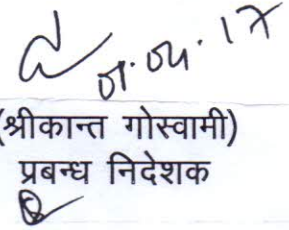 01.04.17
(श्रीकान्त गोस्वामी)
प्रबन्ध निदेशक